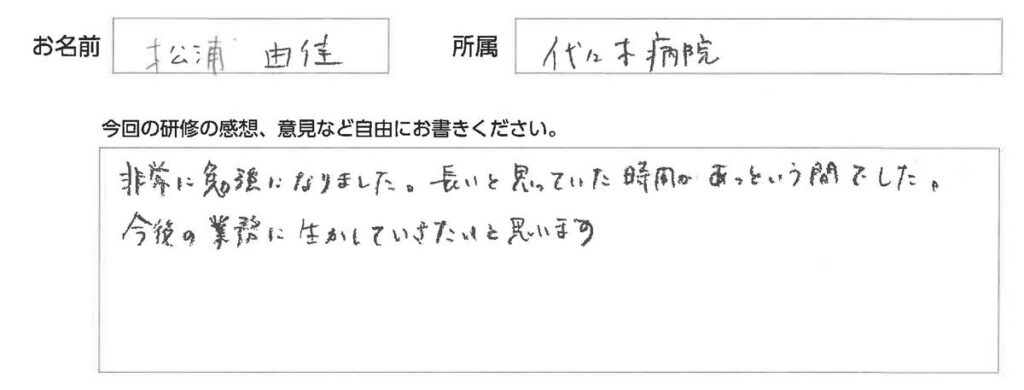 お名前 松浦 由佳 所属 代々木病院
今回の研修の感想、意見など自由にお書きください。
非常に勉強になりました。長いと思っていた時間があっという間でした。
今後の業務に生かしていきたいと思います